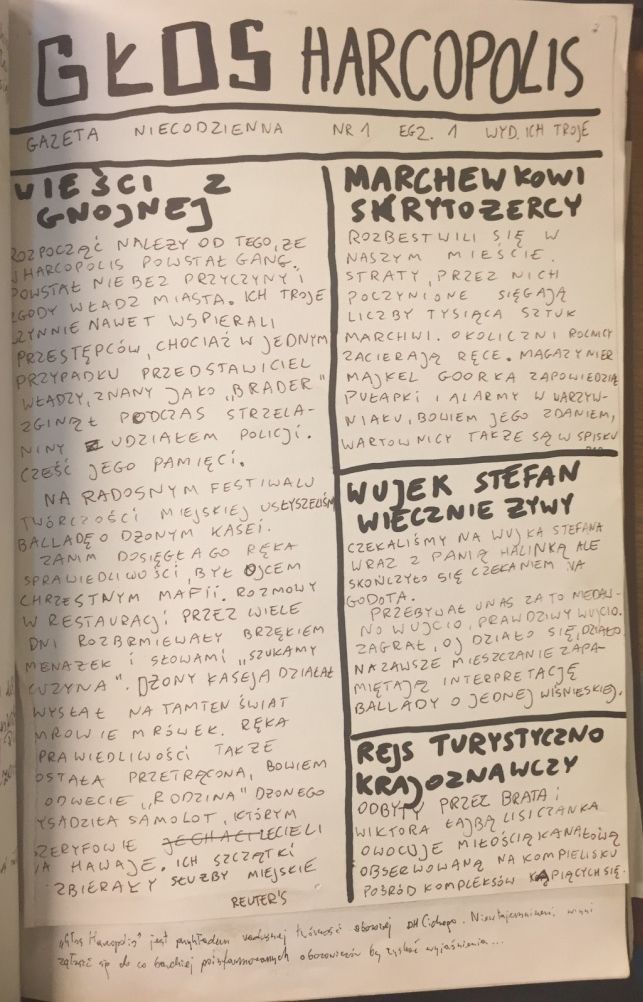 GŁOS HARCOPOLIS
GAZETA NIECODZIENNA NR 1 EGZ. 1 WYD. ICH TROJE
WIEŚCI Z
GNOJNEJ
ROZPOCZĄĆ NALEŻY OD TEGO, ŻE
W HARCOPOLIS POWSTAŁ GANG.
POWSTAŁ NIE BEZ PRZYCZYNY I
ZGODY WŁADZ MIASTA. ICH TROJE
CZYNNIE NAWET WSPIERALI
PRZESTĘPCÓW, CHOCIAŻ W JEDNYM
PRZYPADKU PRZEDSTAWICIEL
WŁADZY, ZNANY JAKO „BRADER"
ZGINĄŁ PODCZAS STRZELA-
NINY Z UDZIAŁEM POLICJI.
CZEŚĆ JEGO PAMIĘCI.
NA RADOSNYM FESTIWALU
TWÓRCZOŚCI MIEJSKIEJ USŁYSZELIŚM
BALLADĘ O DŻONYM KASEI.
ZANIM DOSIĘGŁA GO RĘKA
SPRAWIEDLIWOŚCI, BYŁ OJCEM
CHRZESTNYM MAFII. ROZMOWY
W RESTAURACJI PRZEZ WIELE
DNI ROZBRMIEWAŁY BRZĘKIEM
MENAŻEK I SŁOWAMI „SZUKAMY
CUZYNA". DŻONY KASEJA DZIAŁAŁ
WYSŁAŁ NA TAMTEN ŚWIAT
MROWIE MRÓWEK. RĘKA
PRAWIEDLIWOŚCI TAKŻE
OSTAŁA PRZETRĄCONA, BOWIEM
ODWECIE „RODZINA" DŻONEGO
YSADZIŁA SAMOLOT, KTÓRYM
SZERYFOWIE JECHALI LECIELI
NA HAWAJE. ICH SZCZĄTKI
ZBIERAŁY SŁUŻBY MIEJSKIE
REUTER'S
MARCHEWKOWI
SKRYTOŻERCY
ROZBESTWILI SIĘ W
NASZYM MIEŚCIE.
STRATY, PRZEZ NICH
POCZYNIONE SIĘGAJĄ
LICZBY TYSIĄCA SZTUK
MARCHWI. OKOLICZNI ROLNICY
ZACIERAJĄ RĘCE. MAGAZYNIER
MAJKEL GOORKA ZAPOWIEDZIAŁ
PUŁAPKI I ALARMY W WARZYW-
NIAKU, BOWIEM JEGO ZDANIEM,
WARTOWNICY TAKŻE SĄ W SPISKU
WUJEK STEFAN
WIECZNIE ŻYWY
CZEKALIŚMY NA WUJKA STEFANA
WRAZ Z PANIĄ HALINKĄ ALE
SKOŃCZYŁO SIĘ CZEKANIEM NA
GODOTA.
PRZEBYWAŁ U NAS ZA TO NIEDAW-
NO WUJCIO, PRAWDZIWY WUJCIO.
ZAGRAŁ, OJ DZIAŁO SIĘ, DZIAŁO.
NA ZAWSZE MIESZCZANIE ZAPA-
MIĘTAJĄ INTERPRETACJĘ
BALLADY O JEDNEJ WIŚNIEWSKIEJ.
REJS TURYSTYCZNO
KRAJOZNAWCZY
ODBYTY PRZEZ BRATA I
WIKTORA ŁAJBĄ LISICZANKA
OWOCUJE MIŁOŚCIĄ KANAŁOWĄ
OBSERWOWANĄ NA KOMPIELISKU
POŚRÓD KOMPLEKSÓW KĄPIĄCYCH SIĘ.
„Głos Harcopolis" jest przykładem radosnej twórczości obozowej DH Cichego. Niewtajemniczeni winni
zgłosić się do co bardziej poinformowanych obozowiczów by zyskać wyjaśnienia...